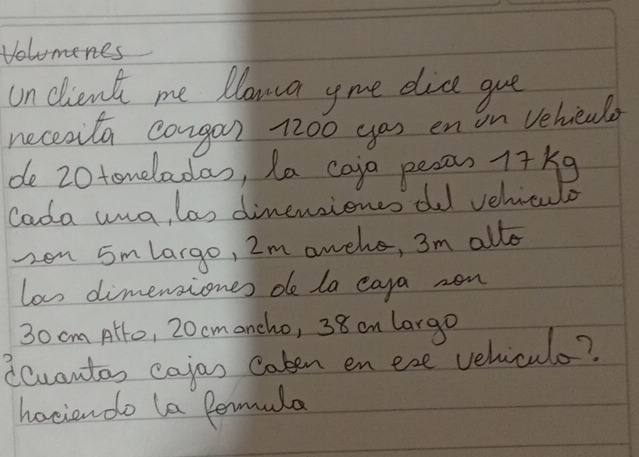 Volumenes
Un cliente me llama y me dice que
necesita cargar 1200 cjas en un vehiculo
de 20 toneladas, la caja pesan 17 Kg
Cada una, las dimensiones del vehiculo
son 5m Largo, 2m ancho, 3m alto
las dimensiones de la caja son
30 cm Alto, 20 cm ancho, 38 cm largo
¿Cuantas cajas caben en ese vehiculo?
haciendo la formula